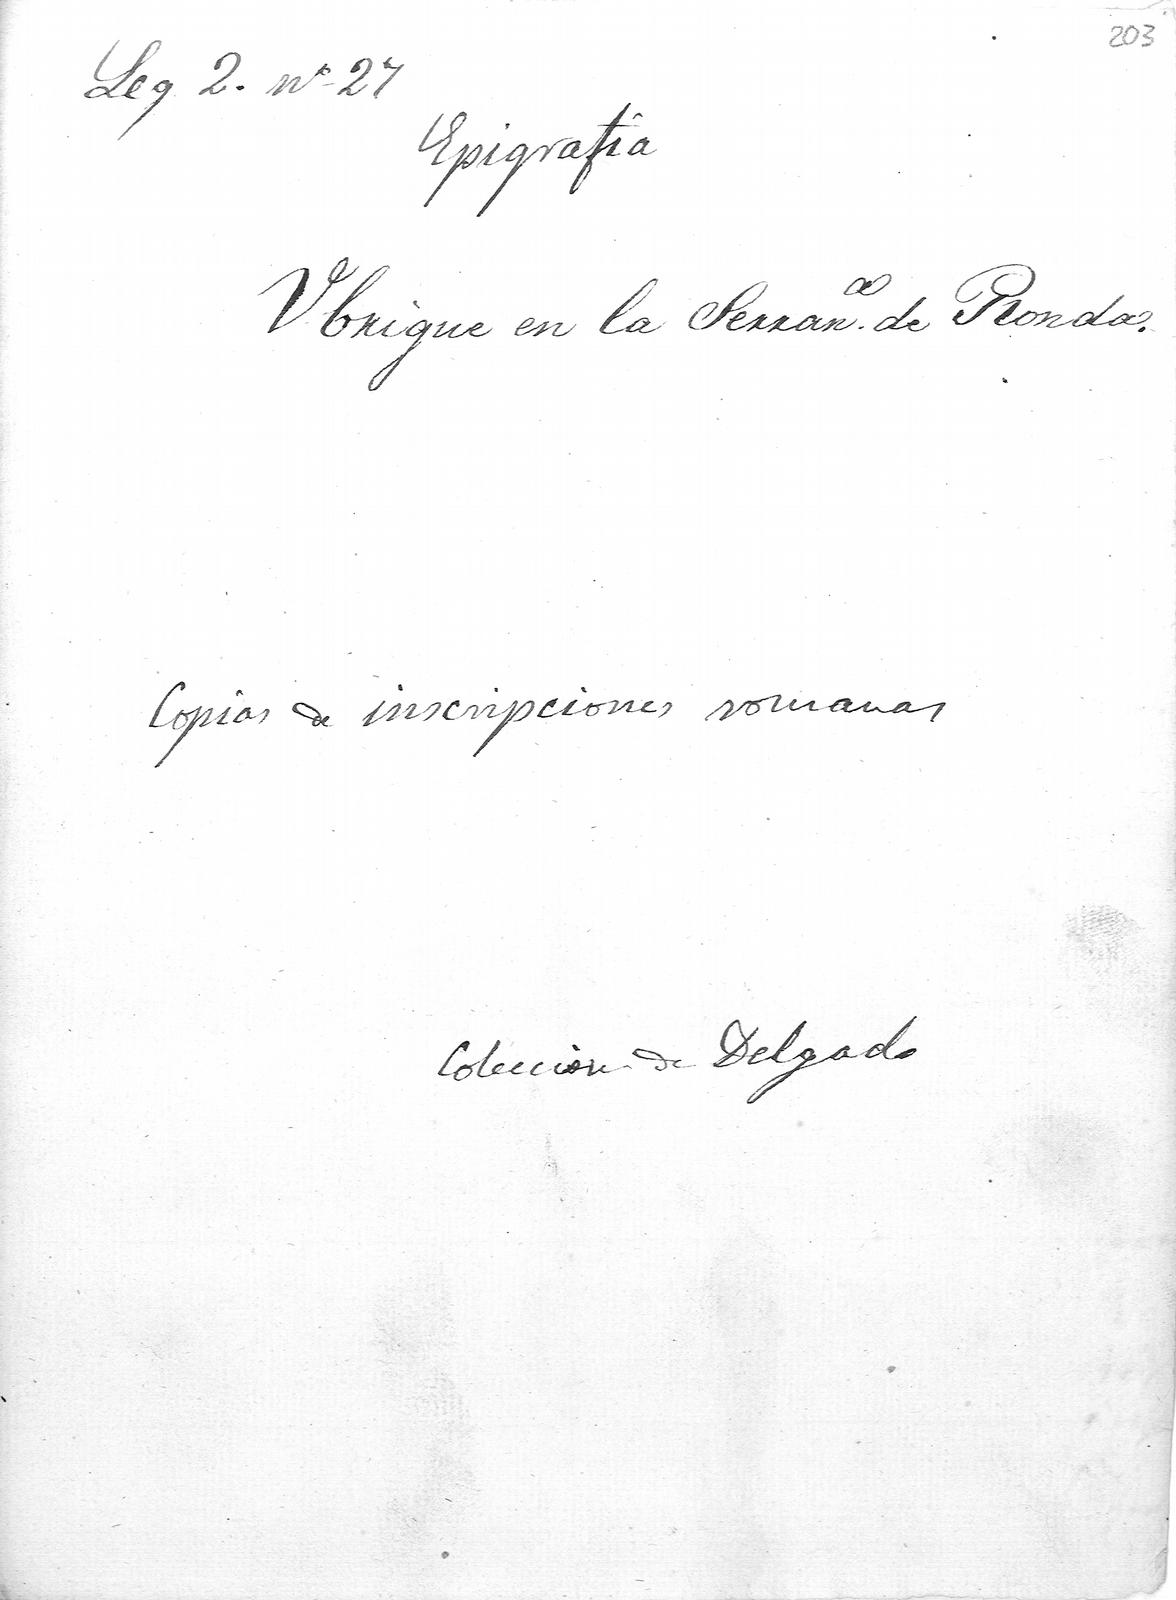 203
Leg 2. nº 27
Epigrafía
Vbrique en la Serran.ª de Ronda.
Copias de inscripciones romanas
Coleccion de Delgado